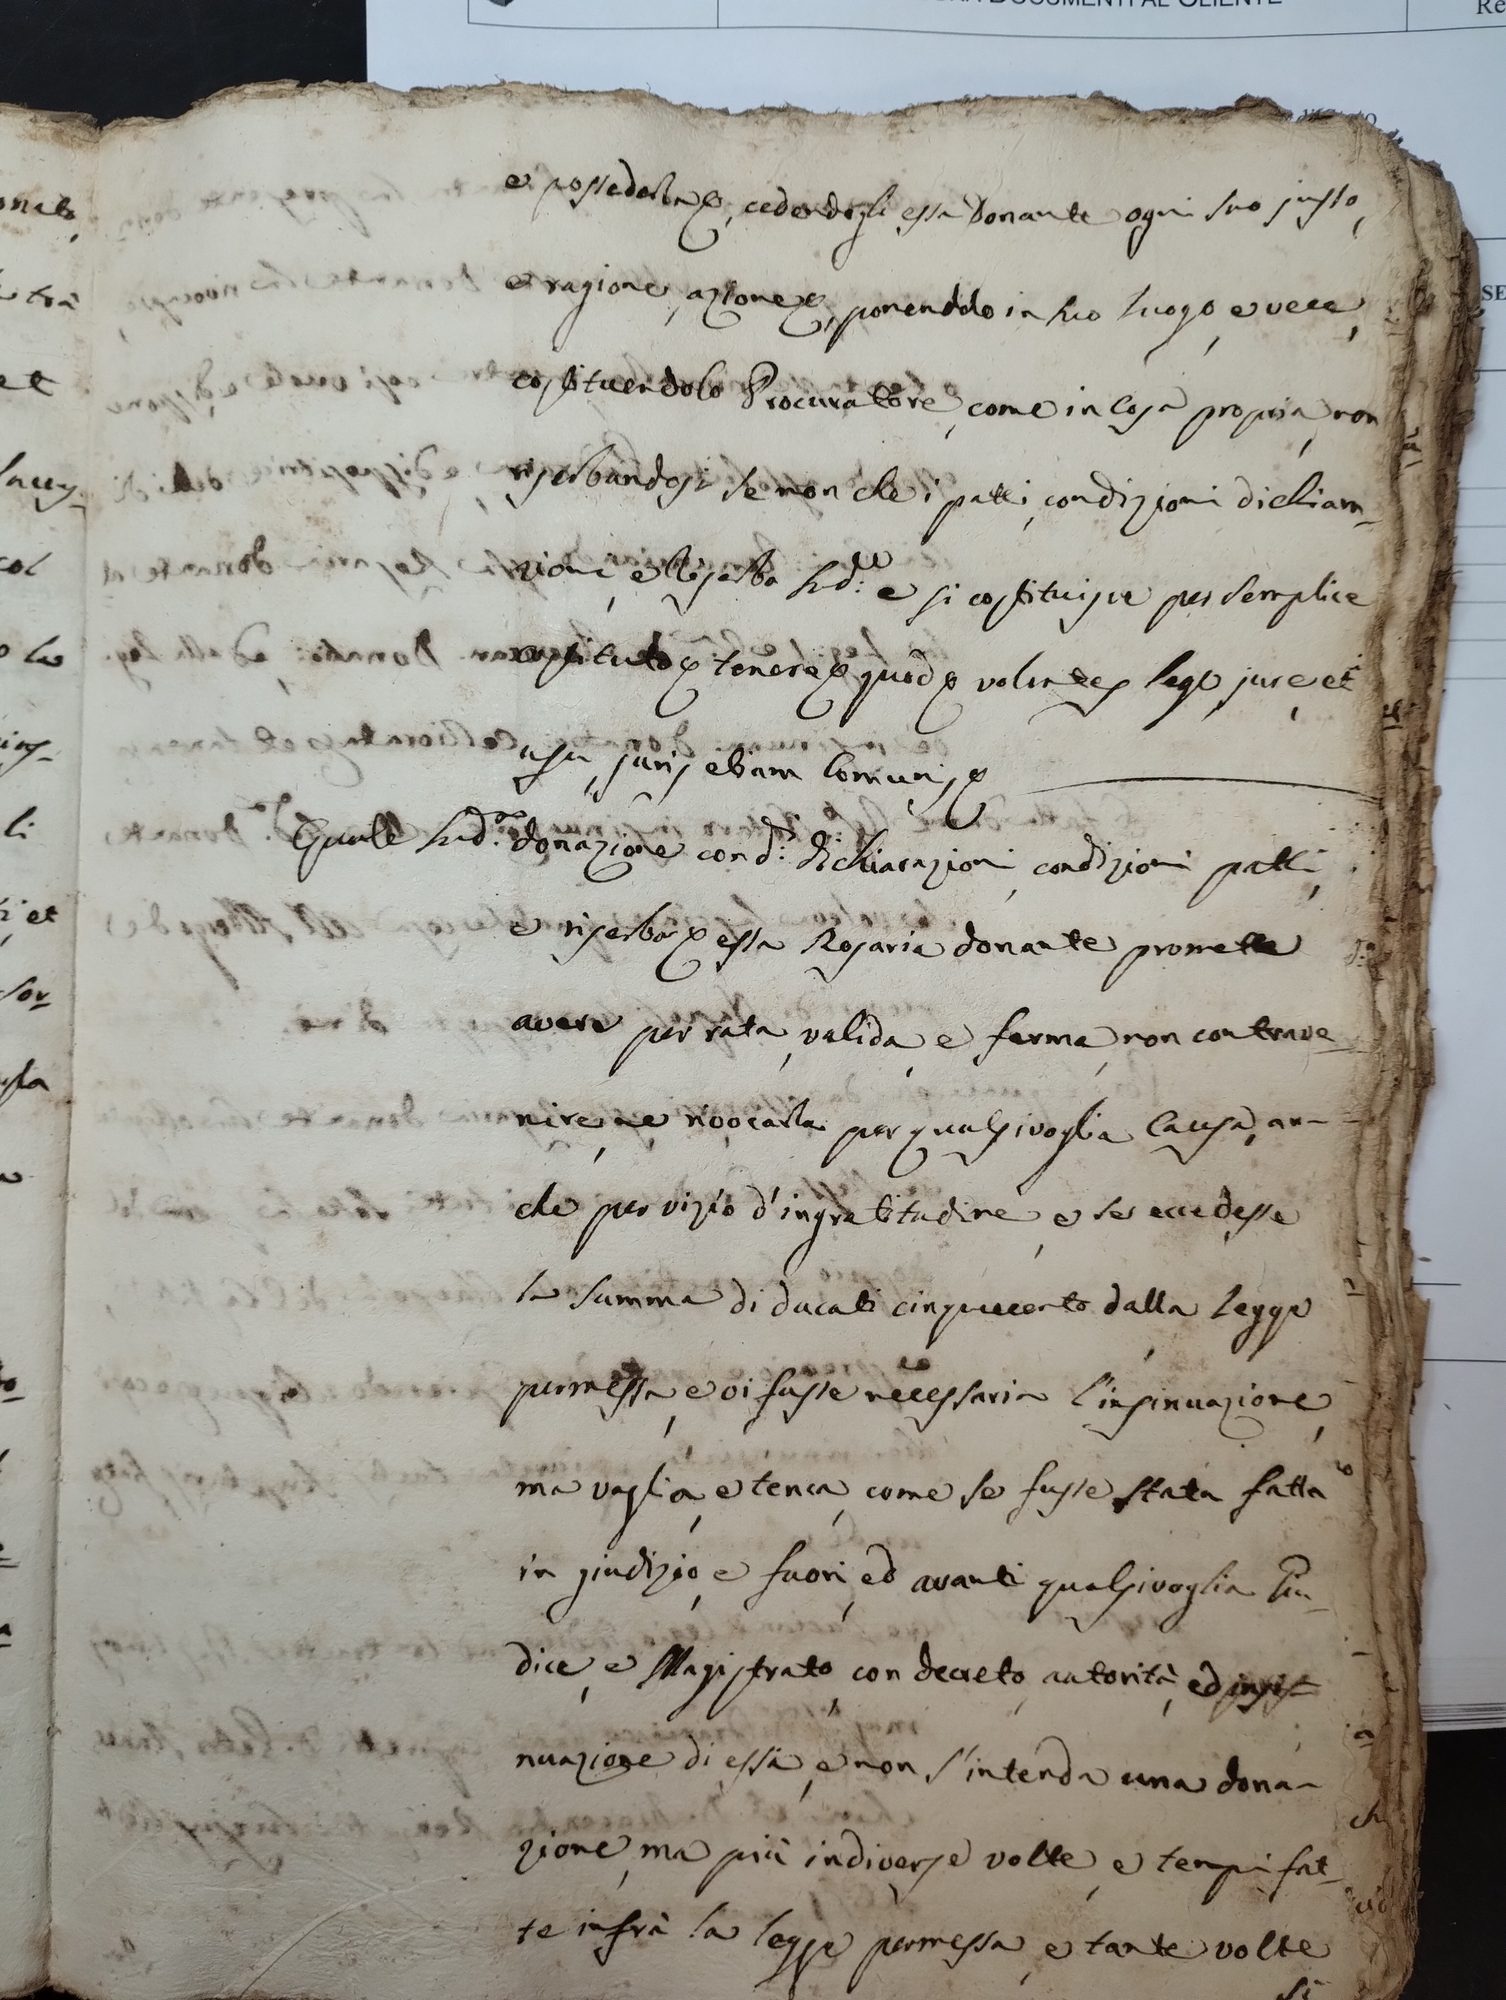 DOCUMENTI AL CLIENTE
Re
SE
e possederla &, cedendogli essa Donante ogni suo jusso,
e ragione, azione &, ponendolo in suo luogo, e vece,
costituendolo Procuratore, come in cosa propria, non
riserbandosi se non che i patti, condizioni dichiara-
zioni, e riserba sud.e e si costituisce per semplice
costituto & tenere & quod & volentes & lege, jure, et
usu, juris etiam comunis &
Quale sud.a donazione con d.e dichiarazioni, condizioni patti,
e riserba & essa Rosaria donante promette
avere per rata, valida, e ferma, non contrave-
nire, ne rivocarla per qualsivoglia causa, an-
che per vizio d'ingratitudine, e se eccedesse
la summa di ducati cinquecento dalla legge
permessa, e vi fusse necessaria l'insinuazione,
ma vaglia, e tenca, come se fusse stata fatta
in giudizio, e fuori, ed avanti qualsivoglia Giu-
dice, e Magistrato, con decreto, autorità, ed insi-
nuazione di essa, e non s'intenda una dona-
zione, ma più in diverse volte, e tempi fat-
te infrà la legge permessa, e tante volte
si